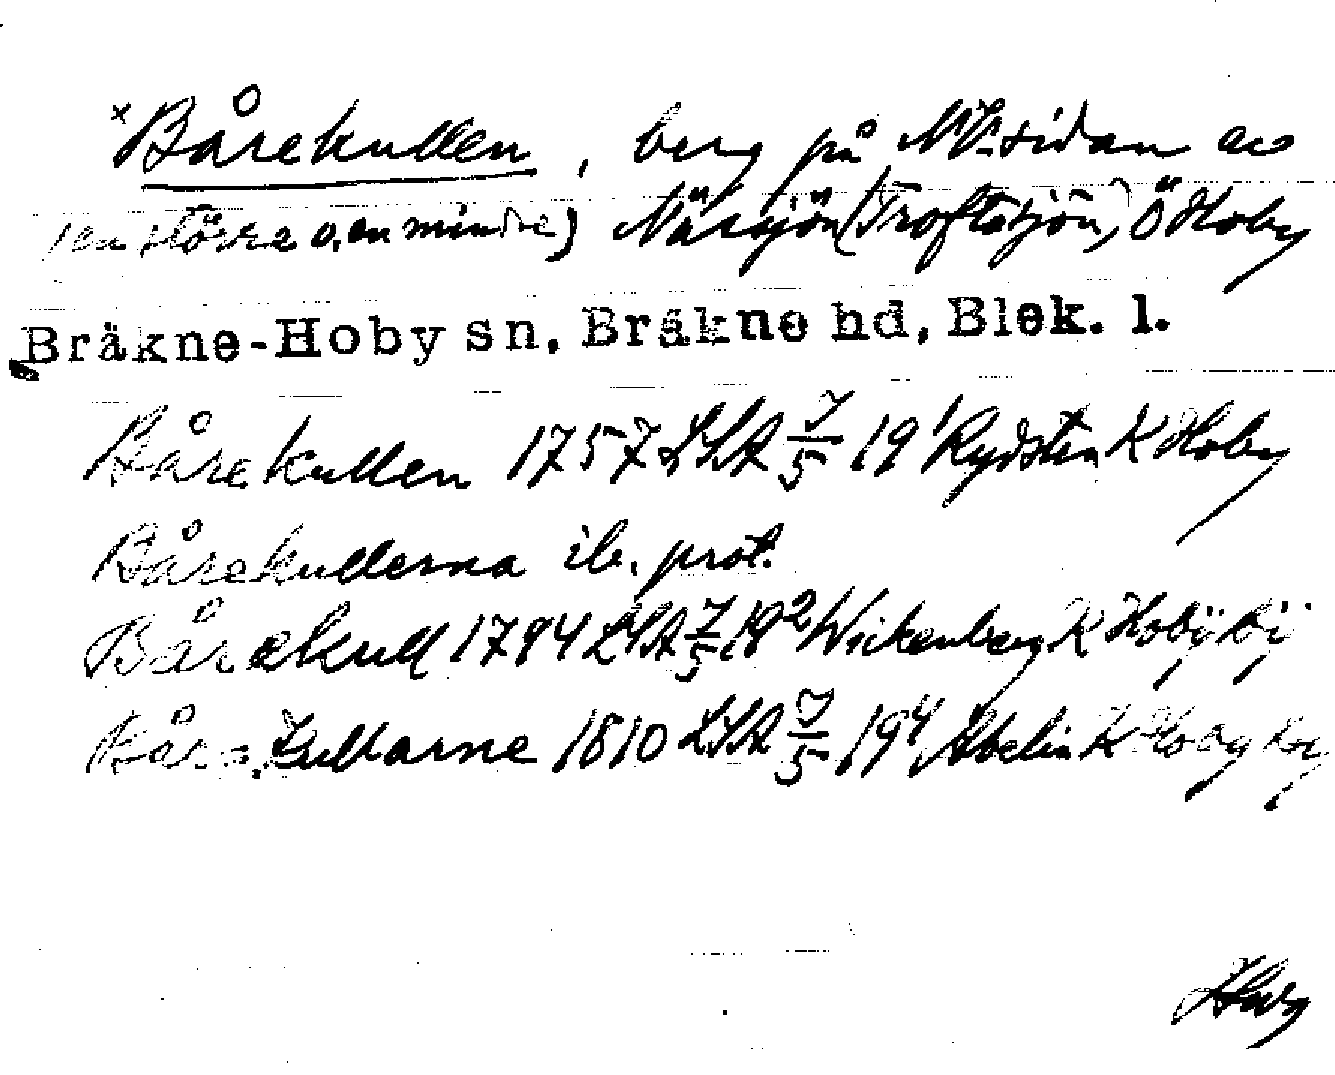 x Bårekullen, berg på NV-sidan av
(en större o. en mindre) Näsasjön (Troftasjön), Ö Hoby
Bräkne-Hoby sn, Bräkne hd, Blek. l.
Bårekullen 1757 LSA 7/5 19¹ Rydsten K Hoby
Bårekullerna ib. prot.
Bårekull 1794 LSA 7/5 19² Wickenberg K Hobÿ bÿ
Båra Kullarne 1810 LSA 7/5 19⁴ Abelin K Hoby by